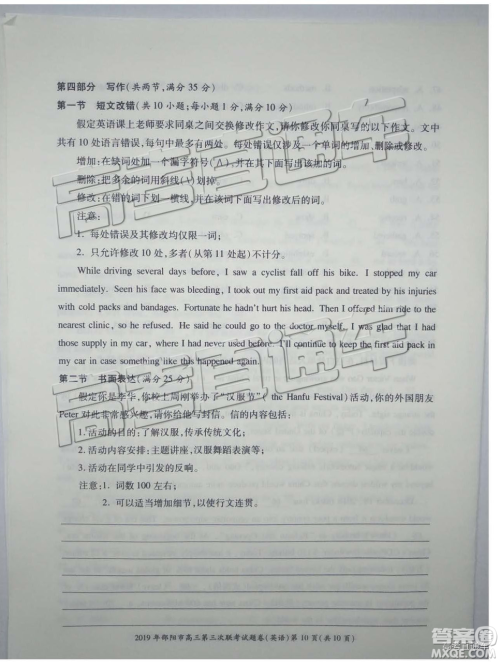 第四部分 写作(共两节,满分 35 分)
第一节 短文改错(共 10 小题;每小题 1 分,满分 10 分)
假定英语课上老师要求同桌之间交换修改作文,请你修改你同桌写的以下作文。文中
共有 10 处语言错误,每句中最多有两处。每处错误仅涉及一个单词的增加、删除或修改。
增加:在缺词处加一个漏字符号(∧),并在其下面写出该加的词。
删除:把多余的词用斜线(\)划掉。
修改:在错的词下划一横线,并在该词下面写出修改后的词。
注意:
1. 每处错误及其修改均仅限一词;
2. 只允许修改 10 处,多者(从第 11 处起)不计分。
While driving several days before, I saw a cyclist fall off his bike. I stopped my car
immediately. Seen his face was bleeding, I took out my first aid pack and treated by his injuries
with cold packs and bandages. Fortunate he hadn't hurt his head. Then I offered him ride to the
nearest clinic, so he refused. He said he could go to the doctor myself. I was glad that I had
those supply in my car, where I had never used before. I'll continue to keep the first aid pack in
my car in case something like this happened again.
第二节 书面表达(满分 25 分)
假定你是李华,你校上周刚举办了“汉服节”( the Hanfu Festival)活动,你的外国朋友
Peter 对此非常感兴趣,请你给他写封信。信的内容包括:
1. 活动的目的:了解汉服,传承传统文化;
2. 活动内容安排:主题讲座,汉服舞蹈表演等;
3. 活动在同学中引发的反响。
注意:1. 词数 100 左右;
2. 可以适当增加细节,以使行文连贯。
2019 年邵阳市高三第三次联考试题卷(英语)第 10 页(共 10 页)
高考直通车
高考直通车
答案圈